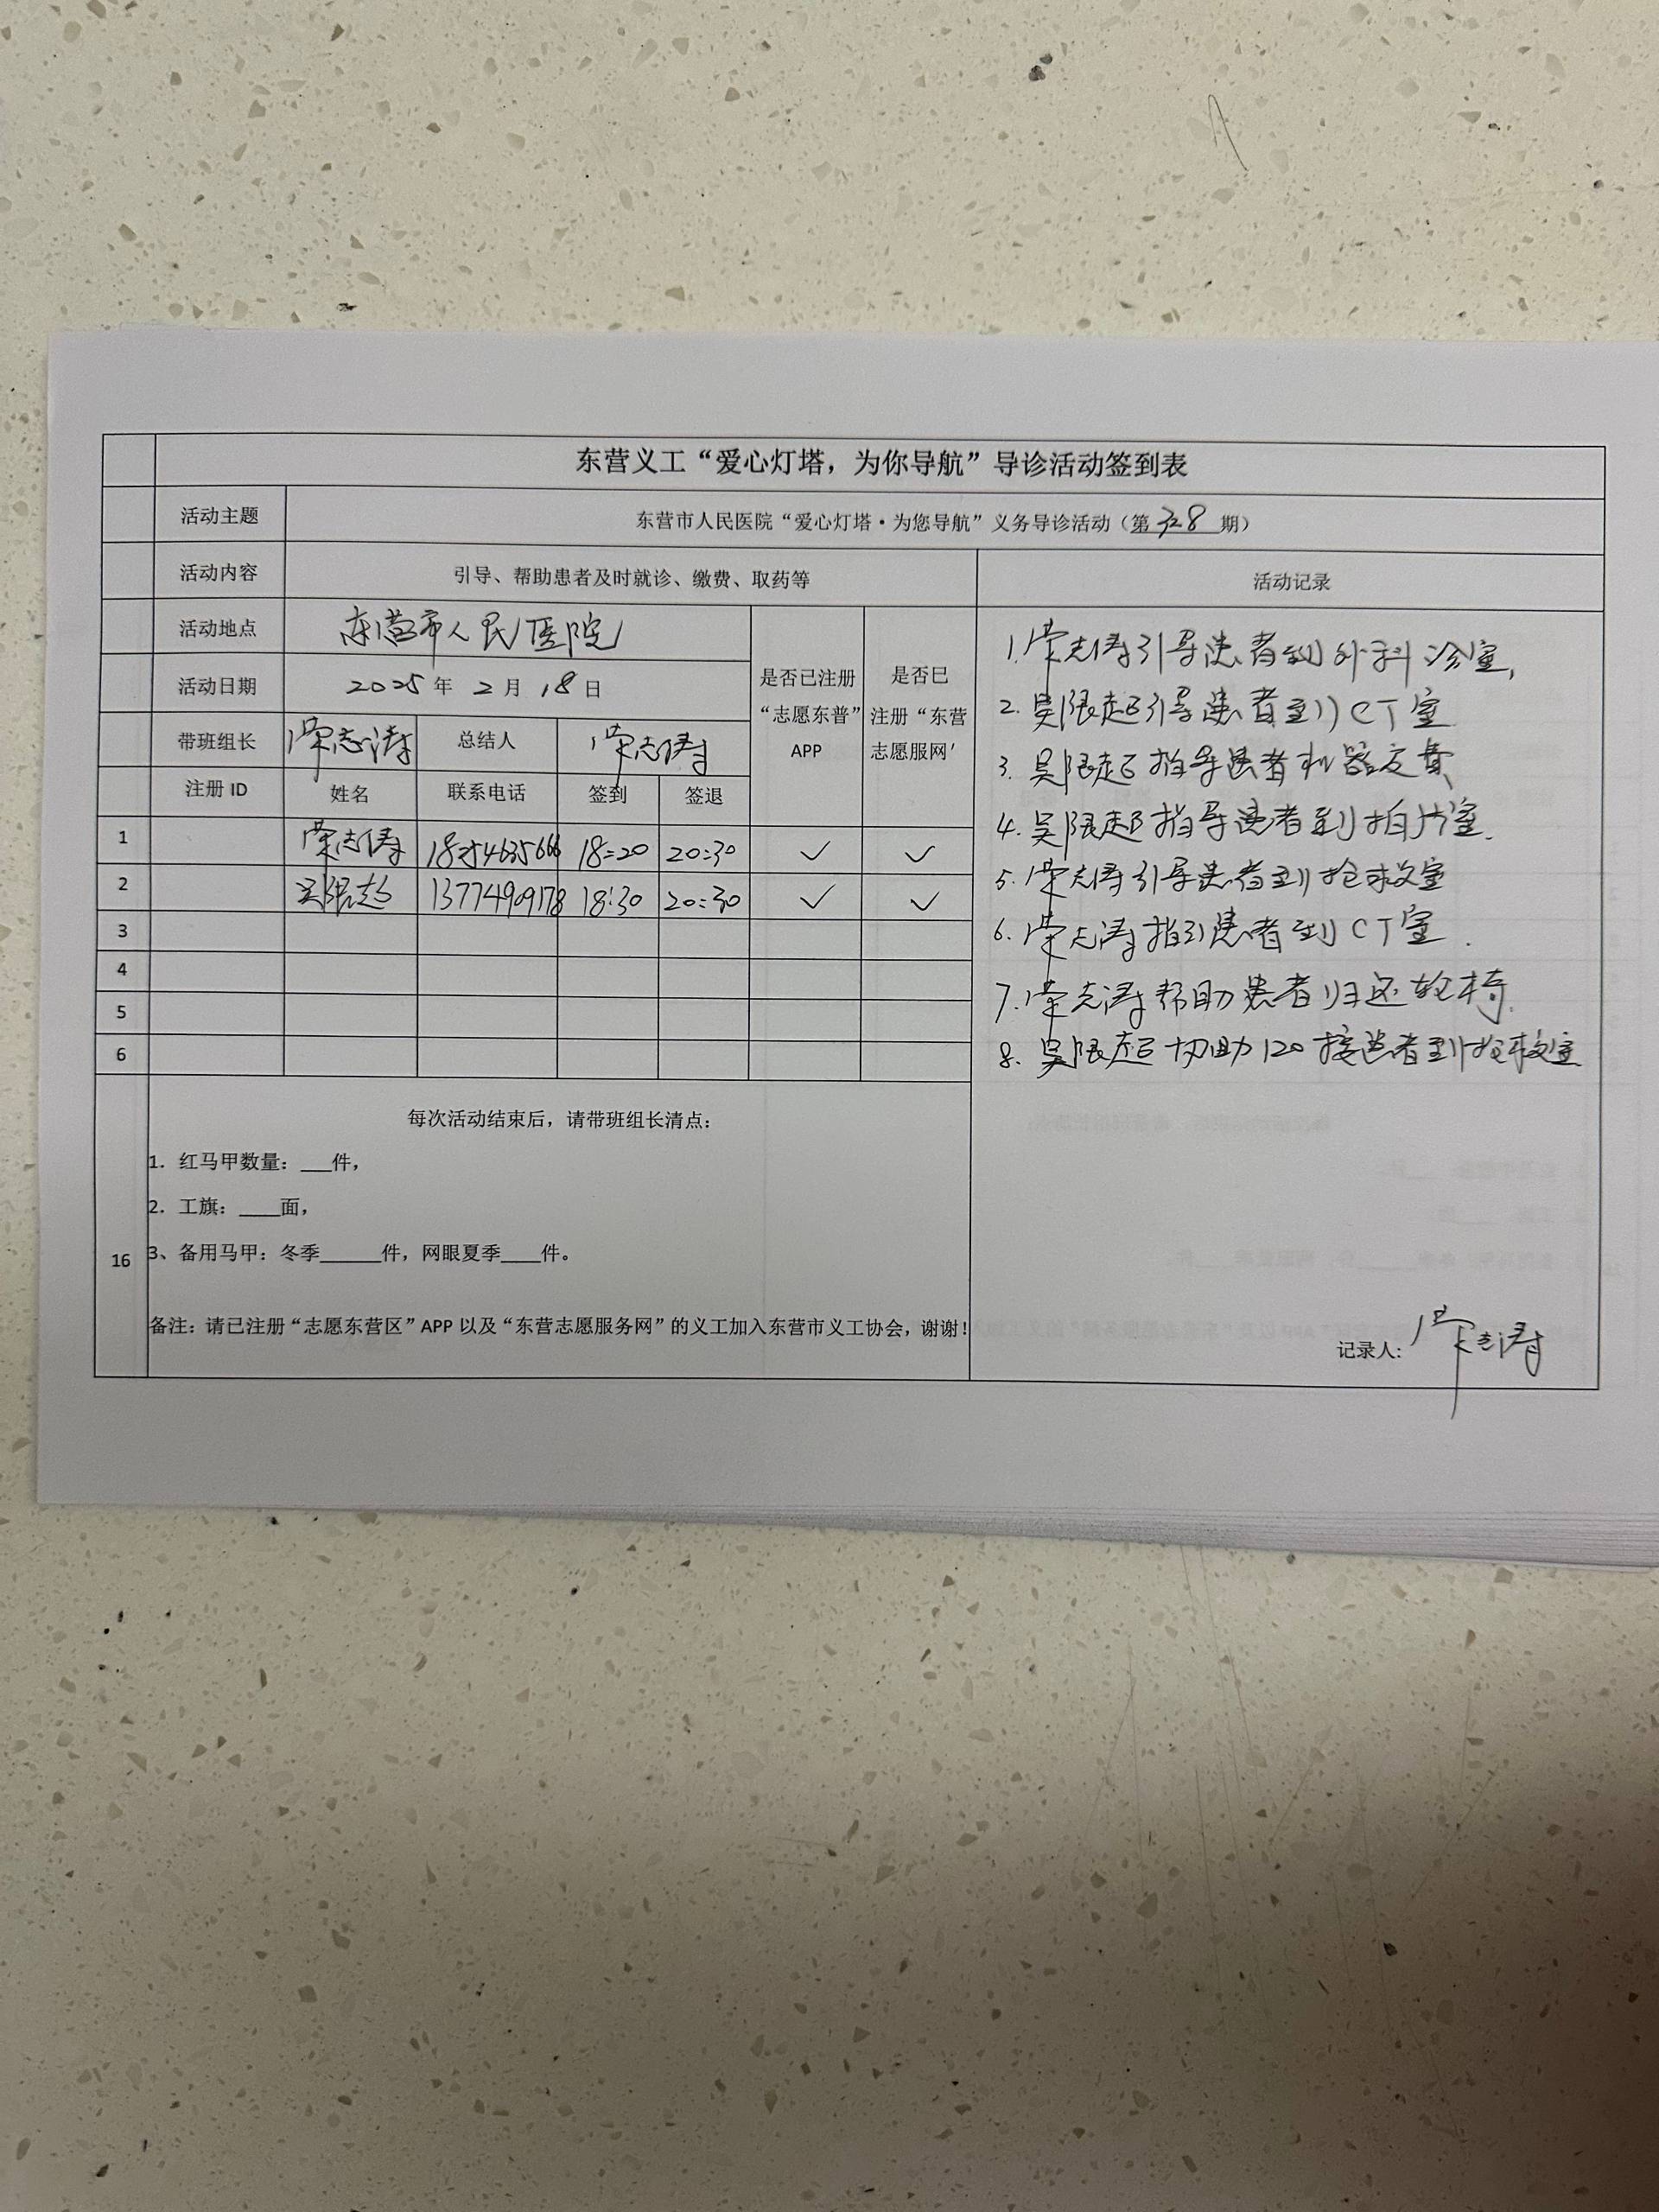 东营义工“爱心灯塔，为你导航”导诊活动签到表
活动主题 东营市人民医院“爱心灯塔·为您导航”义务导诊活动（第328期）
活动内容 引导、帮助患者及时就诊、缴费、取药等 活动记录
活动地点 东营市人民医院
活动日期 2025年2月18日
是否已注册“志愿东普”APP
是否已注册“东营志愿服网’
带班组长 荣志涛 总结人 荣志涛
注册ID 姓名 联系电话 签到 签退
1 荣志涛 18254635666 18:20 20:30 ✓ ✓
2 吴限起 13774909178 18:30 20:30 ✓ ✓
3
4
5
6
1.荣志涛引导患者到外科诊室,
2.吴限起引导患者到CT室
3.吴限起指导患者机器交费
4.吴限起指导患者到拍片室.
5.荣志涛引导患者到抢救室
6.荣志涛指引患者到CT室.
7.荣志涛帮助患者归还轮椅.
8.吴限起协助120接患者到抢救室
16
每次活动结束后，请带班组长清点：
1. 红马甲数量：___件，
2. 工旗：____面，
3、备用马甲：冬季______件，网眼夏季____件。
备注：请已注册“志愿东营区”APP 以及“东营志愿服务网”的义工加入东营市义工协会，谢谢！
记录人: 荣志涛